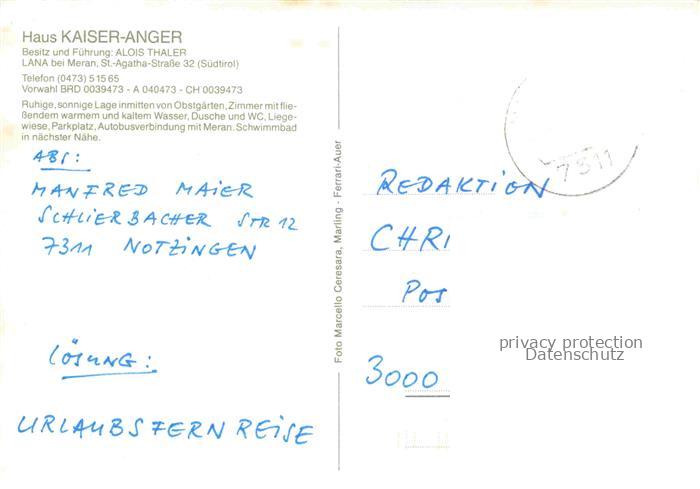 Haus KAISER-ANGER
Besitz und Führung: ALOIS THALER
LANA bei Meran, St.-Agatha-Straße 32 (Südtirol)
Telefon (0473) 5 15 65
Vorwahl BRD 0039473 - A 040473 - CH 0039473
Ruhige, sonnige Lage inmitten von Obstgärten, Zimmer mit flie-
ßendem warmem und kaltem Wasser, Dusche und WC, Liege-
wiese, Parkplatz, Autobusverbindung mit Meran. Schwimmbad
in nächster Nähe.
ABS:
MANFRED MAIER
SCHLIERBACHER STR 12
7311 NOTZINGEN
LÖSUNG:
URLAUBSFERNREISE
Foto Marcello Ceresara, Marling - Ferrari-Auer
7311
REDAKTION
CHRI
POS
3000
privacy protection
Datenschutz